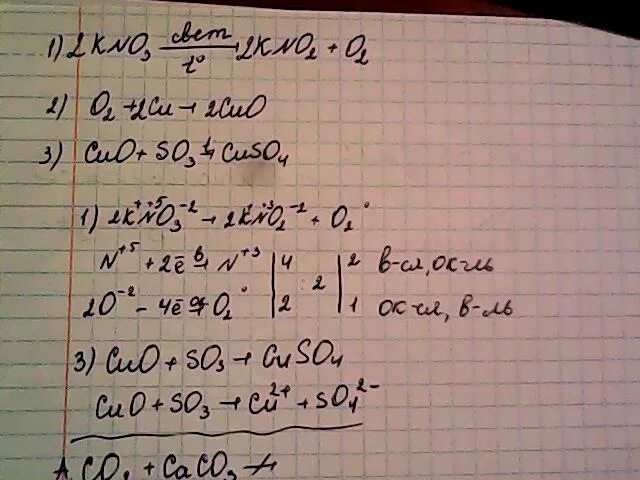 1) 2KNO₃ свет/t° → 2KNO₂ + O₂
2) O₂ + 2Cu → 2CuO
3) CuO + SO₃ → CuSO₄
1) 2K⁺N⁺⁵O₃⁻² → 2K⁺N⁺³O₂⁻² + O₂°
N⁺⁵ + 2ē в→ N⁺³ | 4 | 2 в-ся, ок-ль
: 2
2O⁻² – 4ē ок→ O₂° | 2 | 1 ок-ся, в-ль
3) CuO + SO₃ → CuSO₄
CuO + SO₃ → Cu²⁺ + SO₄²⁻
+ CaCO₃ →